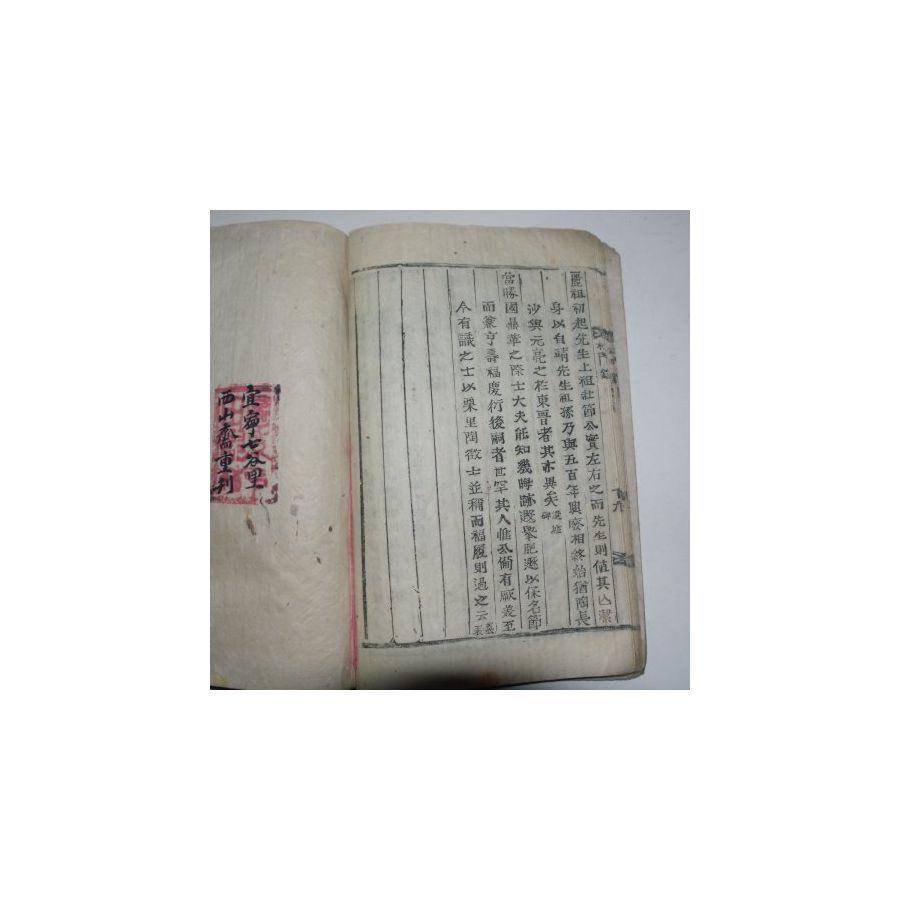 麗祖初起先生上祖壯節公實左右之而先生則値其亡潔
身以自靖先生祖孫乃與五百年興廢相終始猶陶長
沙與元亮之於東晋者其亦異矣
當勝國鼎革之際士大夫能知幾晦跡遯以保名節
而兼亨壽福慶衍後嗣者世罕其人惟公備有厥美至
今有識之士以栗里陶徵士並稱而福履則過之云
宜寧七谷里
西山齋重刊